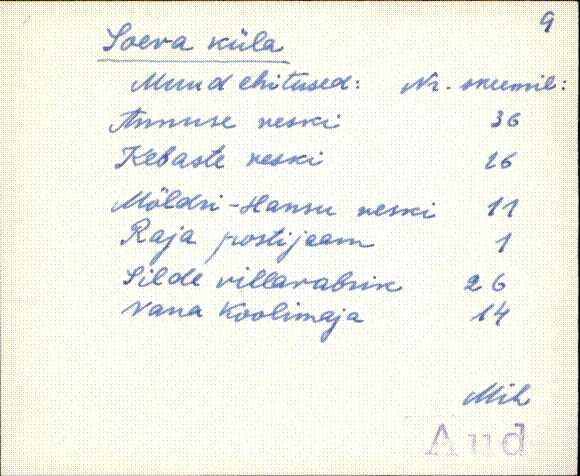 9
Soeva küla
Muud ehitused: Nr. skeemil:
Annuse veski 36
Kebaste veski 16
Möldri-Hansu veski 11
Raja postijaam 1
Silde villavabrik 26
Vana koolimaja 14
Mih
Aud